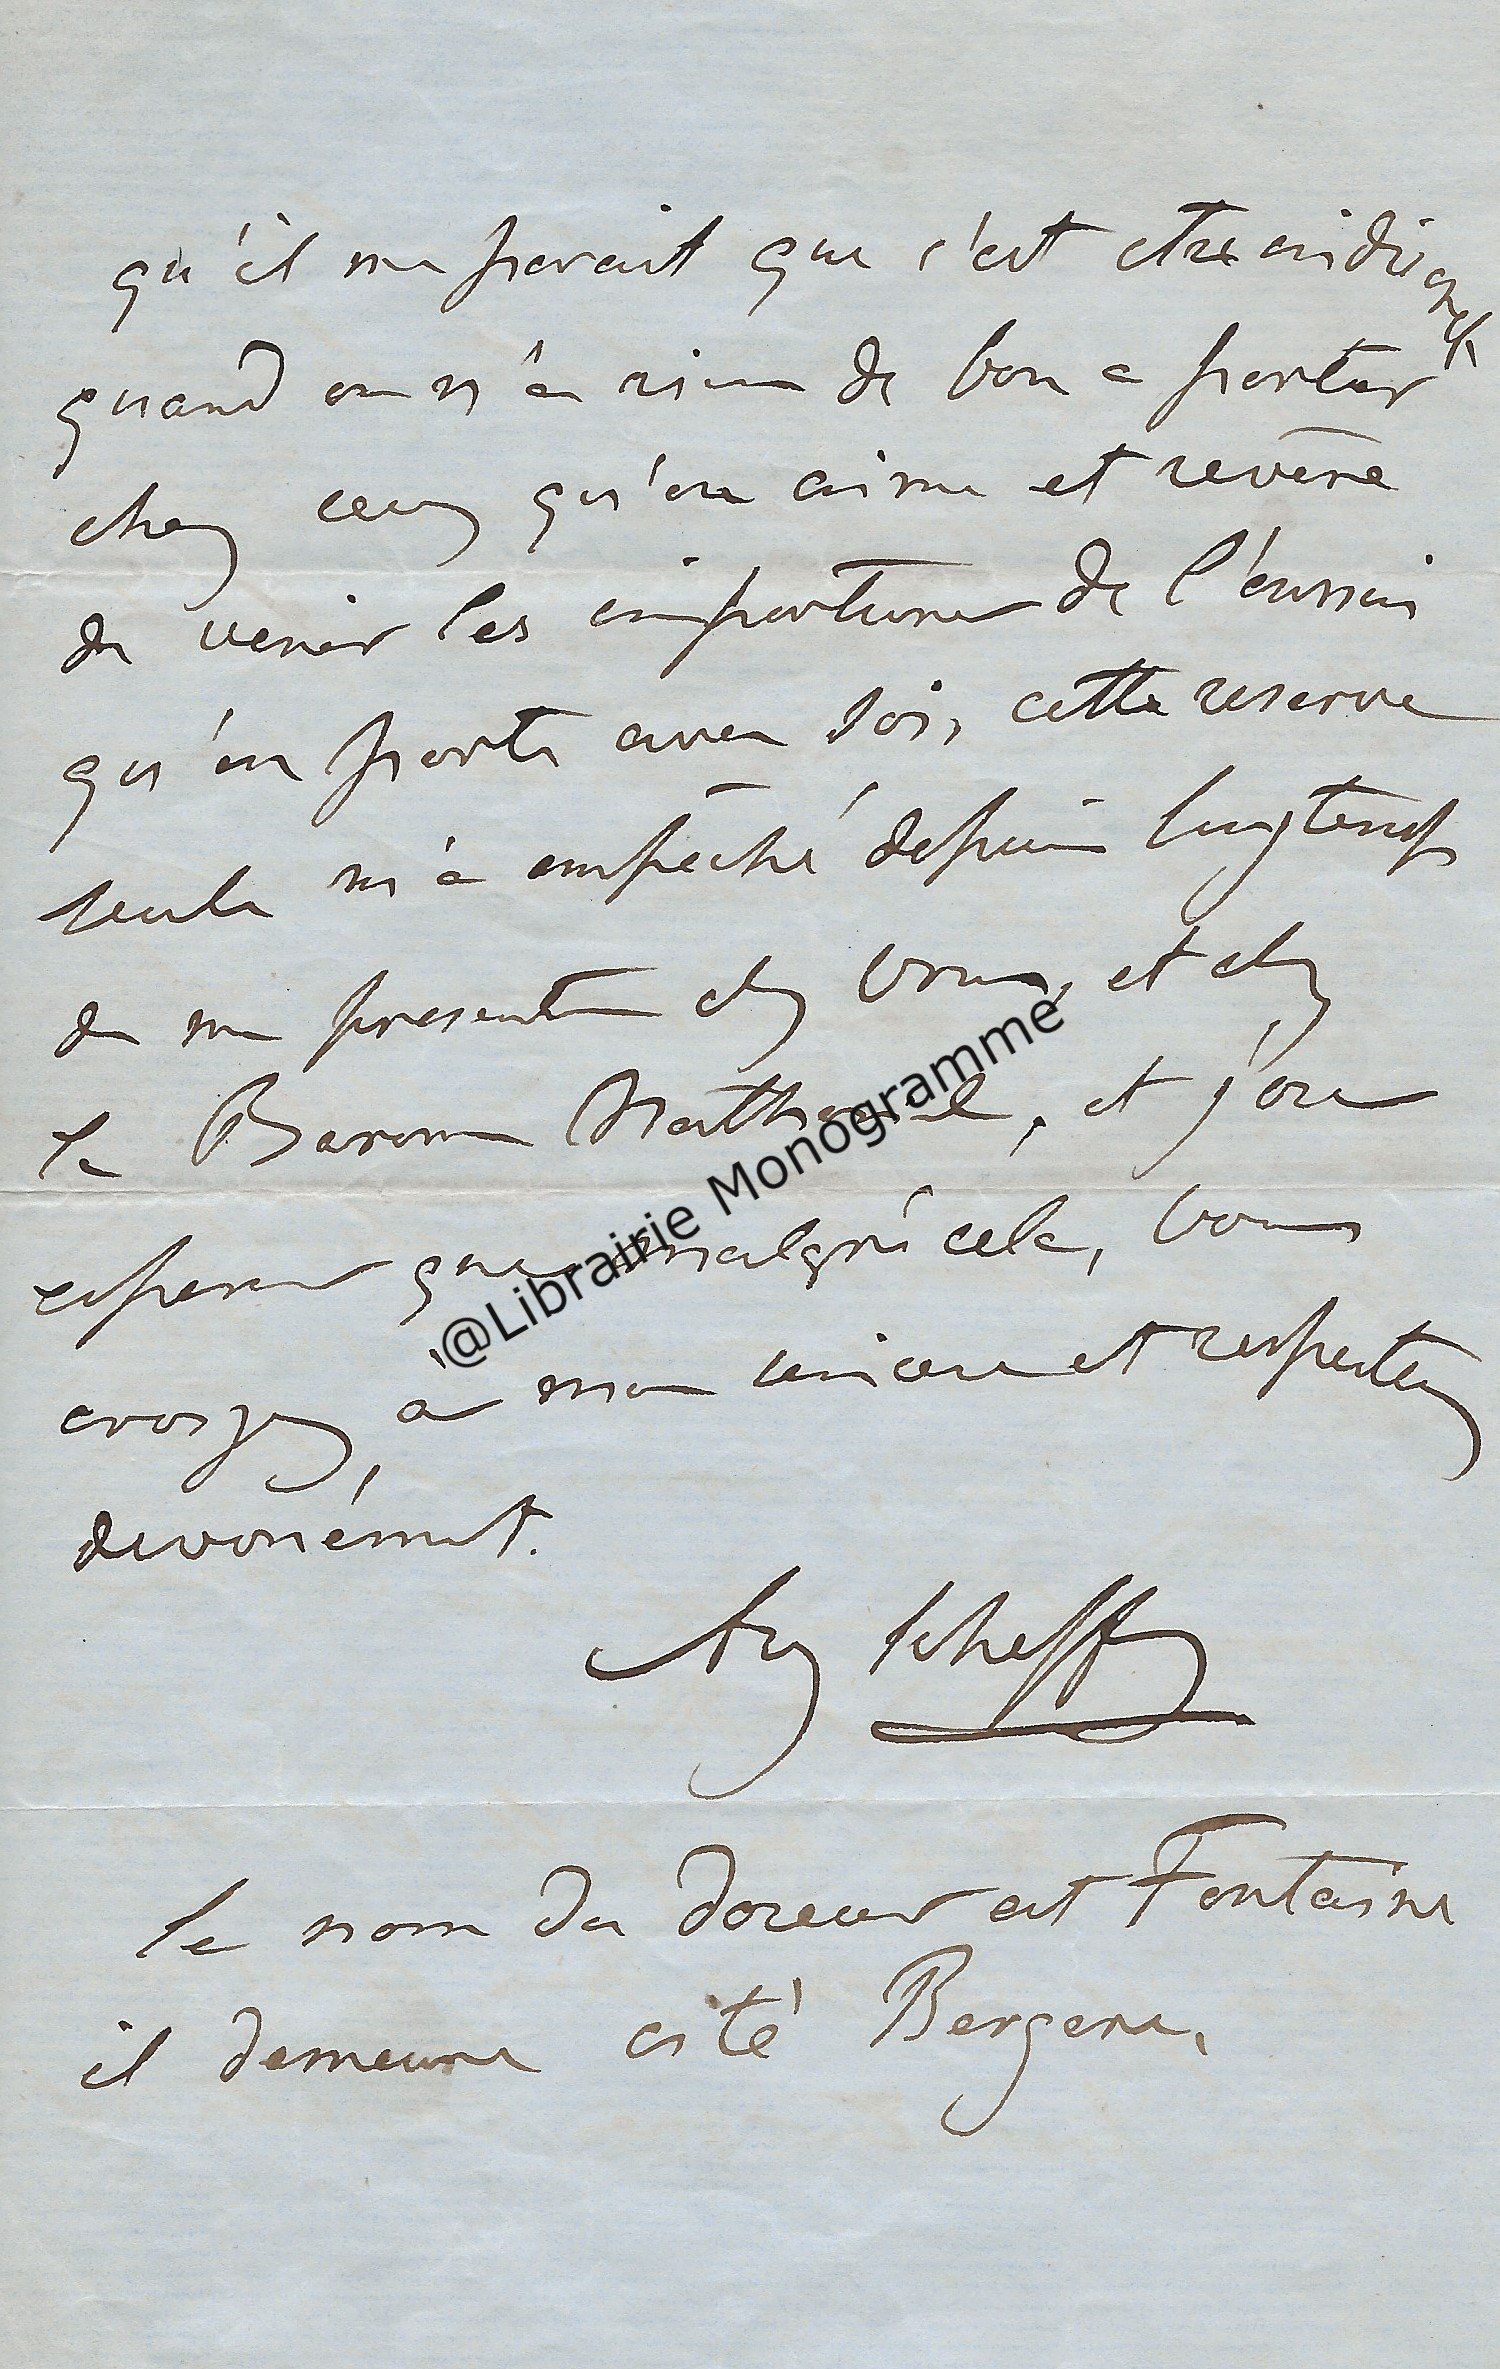 qu'il me parait que c'est etre indiscret
quand on n'a rien de bon a porter
chez ceux qu'on aime et revère
de venir les importuner de l'ennui
qu'on porte avec soi, cette reserve
seule m'a empêché depuis longtemps
de me presenter chez vous, et chez
le Baron Nathaniel, et j'ose
esperer que malgré cela, vous
croyez, à mon sincere et respectueux
devouément.
Ary Scheffer
le nom du doreur est Fontaine
il demeure cité Bergere.
@Librairie Monogramme